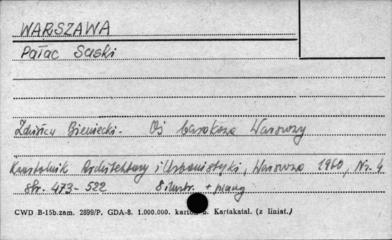 WARSZAWA
Pałac Saski
Zdzisław Bieniecki. Oś barokowa Warszawy
Kwartalnik Architektury i Urbanistyki, Warszawa 1960, Nr. 4
Str. 473-522 8 ilustr. + plany
CWD B-15b.zam. 2899/P. GDA-8. 1.000.000. karton Kartakatal. (z liniat.)